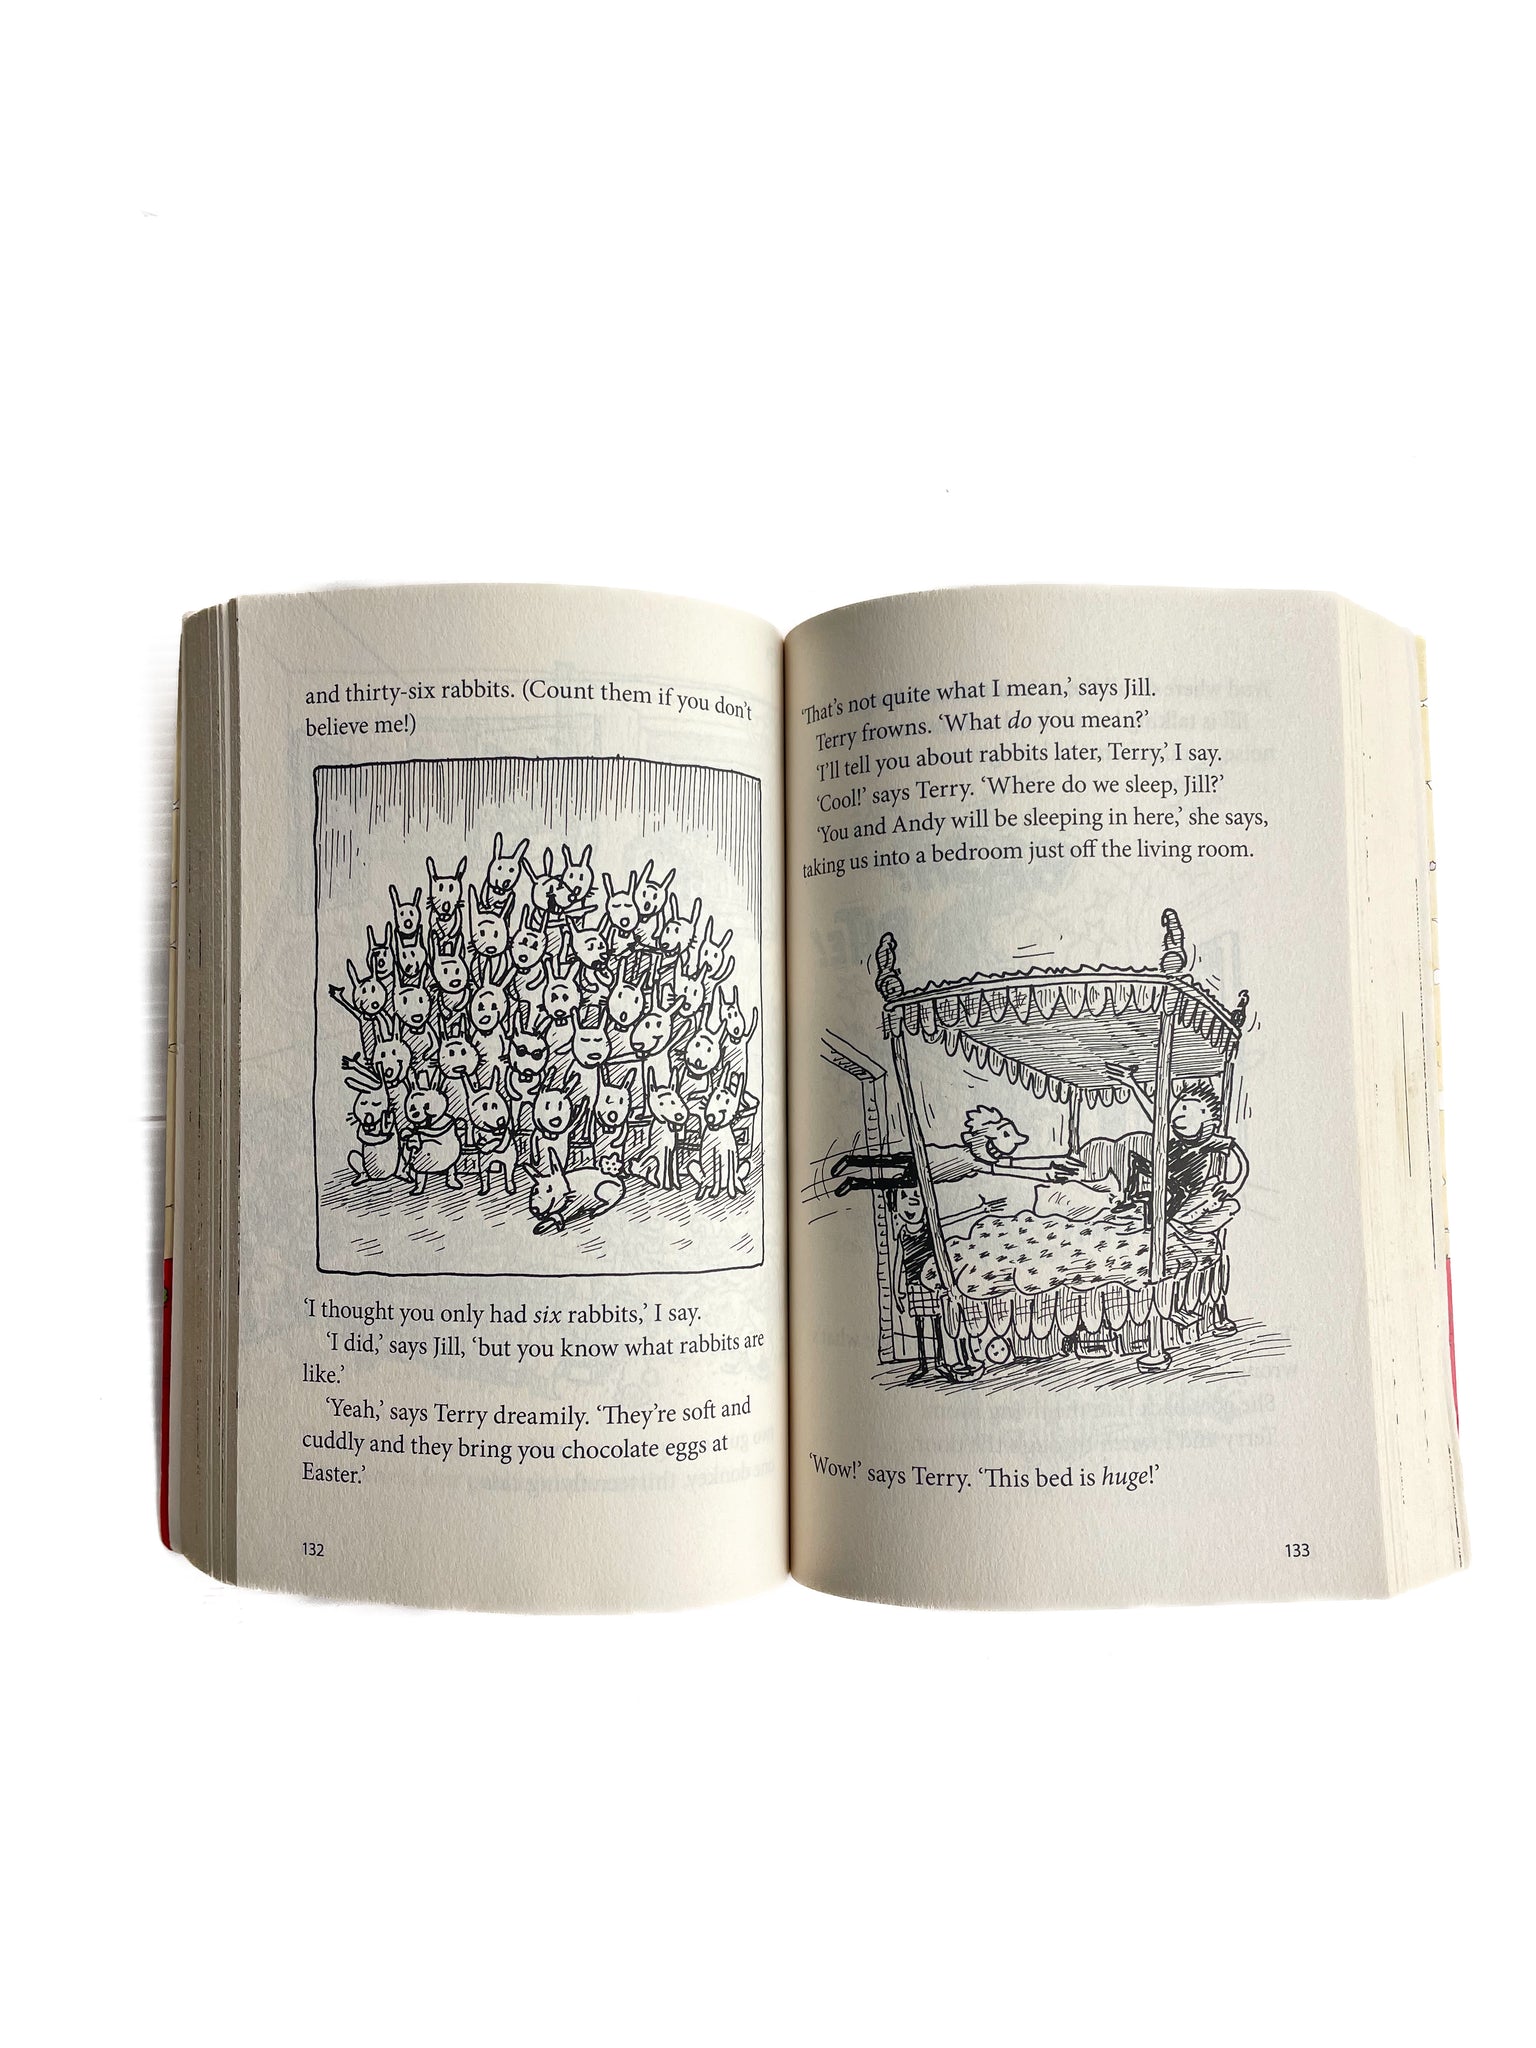 and thirty-six rabbits. (Count them if you don't
believe me!)
‘I thought you only had six rabbits,’ I say.
‘I did,’ says Jill, ‘but you know what rabbits are
like.’
‘Yeah,’ says Terry dreamily. ‘They’re soft and
cuddly and they bring you chocolate eggs at
Easter.’
132
‘That’s not quite what I mean,’ says Jill.
Terry frowns. ‘What do you mean?’
‘I’ll tell you about rabbits later, Terry,’ I say.
‘Cool!’ says Terry. ‘Where do we sleep, Jill?’
‘You and Andy will be sleeping in here,’ she says,
taking us into a bedroom just off the living room.
‘Wow!’ says Terry. ‘This bed is huge!’
133